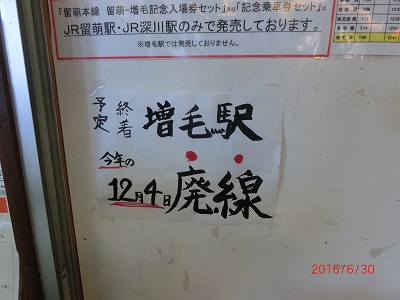 「留萌本線 留萌-増毛記念入場券セット」及び「記念乗車券セット」は
JR留萌駅・JR深川駅のみで発売しております。
※増毛駅では発売しておりません。
予定 終着 増毛駅
今年の
12月4日廃線
2016/6/30